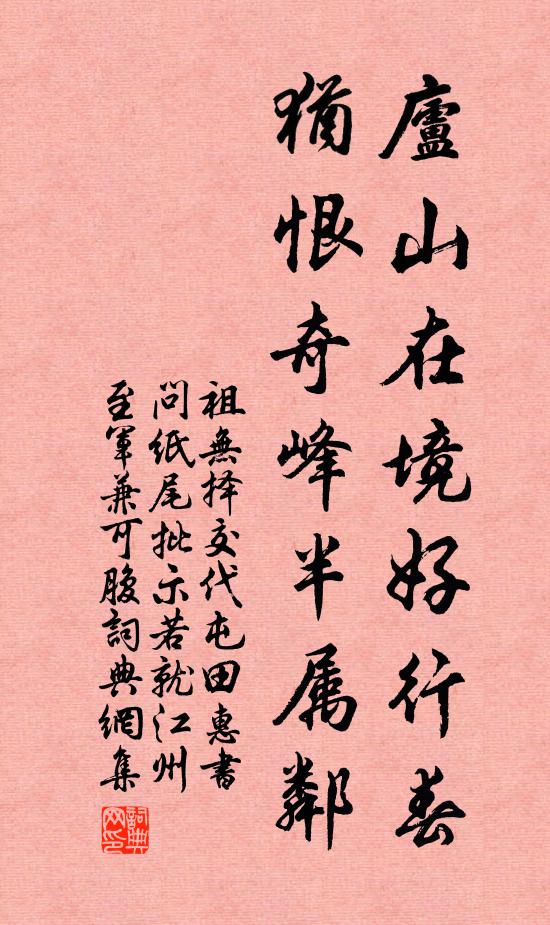 廬山在境好行春
猶恨奇峰半属鄰
祖無择交代屯田惠書
問纸尾批示若就江州
至軍兼可腹詞典網集
詞典网印